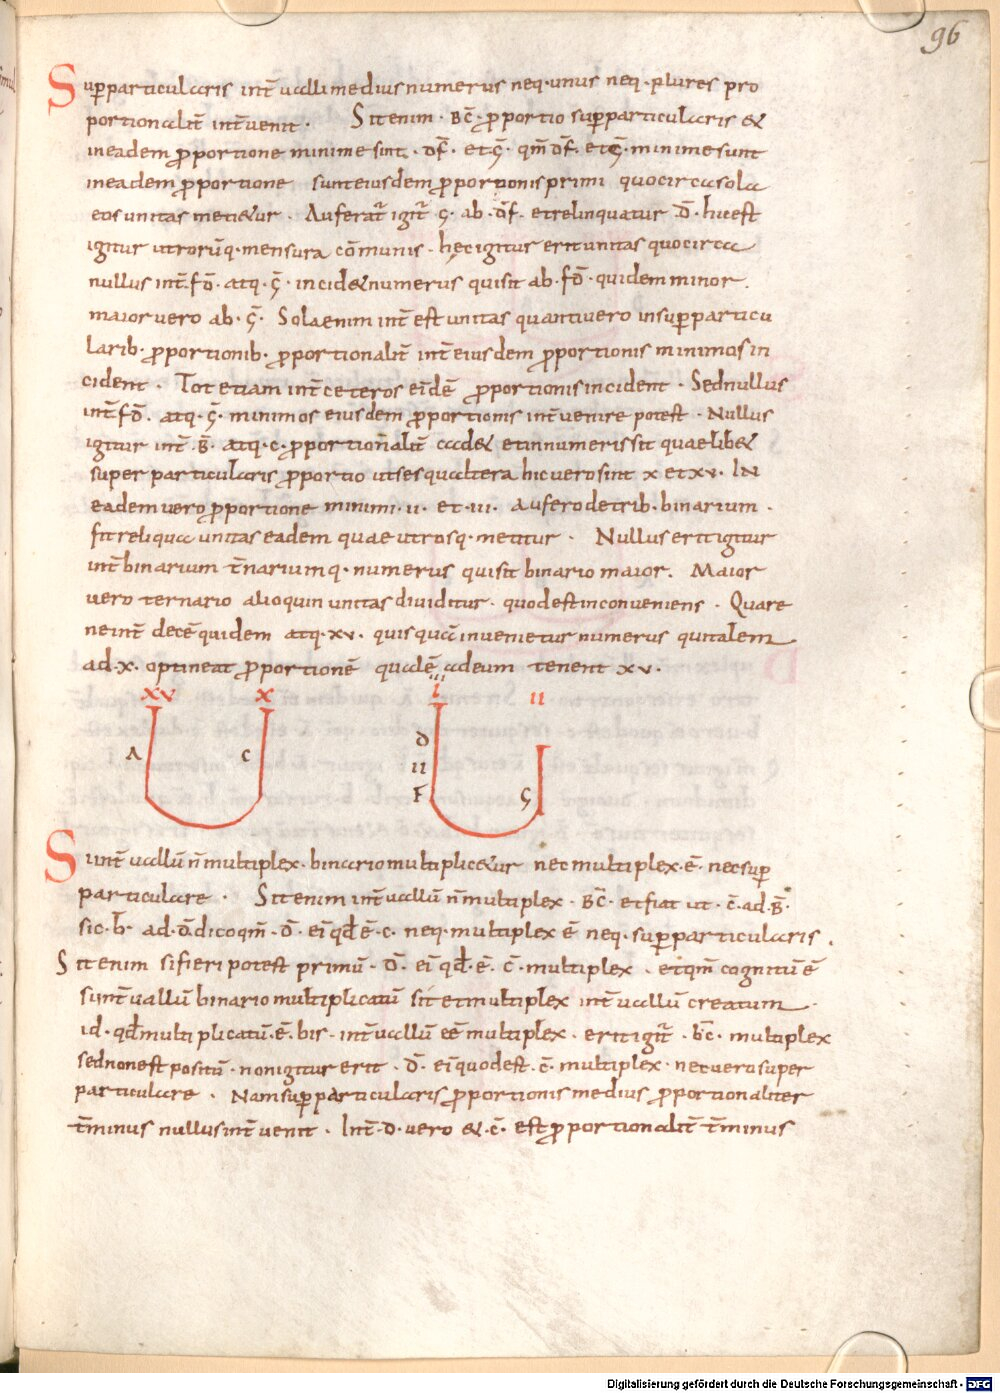 96
Sup̄particularis int̄ ualli medius numerus neq· unus neq· plures pro
portionalit̄ int̄uenit · Sit enim · BC̄ · p̄portio sup̄particularis &
in eadem p̄portione minime sint · DF̄ · et Ḡ · qm̄ DF̄ · et Ḡ · minime sunt
in eadem p̄portione sunt eiusdem p̄portionis primi quocirca sola
eos unitas meti&ur · Auferat̄ igit̄ Ḡ · ab · DF̄ · et relinquatur D̄ · hic est
igitur utrorūq· mensura cōmunis · hęc igitur erit unitas quocirca
nullus int̄ · FD̄ · atq· Ḡ · incid& numerus qui sit ab · FD̄ · quidem minor ·
maior uero ab · Ḡ · Sola enim int̄ est unitas quanti uero in sup̄particu
larib· p̄portionib· p̄portionalit̄ int̄ eiusdem p̄portionis minimos in
cident · Tot etiam int̄ ceteros eīdē p̄portionis incident · Sed nullus
int̄ FD̄ · atq· Ḡ · minimos eiusdem p̄portionis int̄uenire potest · Nullus
igitur int̄ · B̄ · atq· C · p̄portionalit̄ cad& et in numeris sit quaelib&
super particularis p̄portio ut sesqualtera hic uero sint x et xv · IN
eadem uero p̄portione minimi · ii · et · iii · aufero de trib· binarium ·
fit reliqua unitas eadem quae utrosq· metitur · Nullus erit igitur
int̄ binarium t̄nariumq· numerus qui sit binario maior · Maior
uero ternario alioquin unitas diuiditur · quod est inconueniens · Quare
ne int̄ decē quidem atq· xv · quisquā inuenietur numerus qui talem
ad · x · optineat p̄portionē qualē ad eum tenent xv ·
xv x i ii
A C D ii F G
Si int̄uallū n̄ multiplex · binario multiplic&ur nec multiplex · ē · nec sup̄
particulare · Sit enim int̄uallū n̄ multiplex · BC̄ · et fiat ut · C̄ · ad · B̄ ·
sic · B̄ · ad · D̄ · dico qm̄ · D̄ · eī qđ ē · C · neq· multiplex ē neq· sup̄particularis ·
Sit enim si fieri potest primū · D̄ · eī qđ · ē · C̄ · multiplex · et qm̄ cognitū ē
si int̄uallū binario multiplicatū sit et multiplex int̄uallū creatum ·
id · qđ multiplicatū · ē · bis · int̄uallū eē multiplex · erit igit̄ · BC̄ · multiplex
sed non est positū · non igitur erit · D̄ · eī quod est · C̄ · multiplex · nec uero super
particulare · Nam sup̄particularis p̄portionis medius p̄portionaliter
t̄minus nullus int̄uenit · Int̄ · D · uero & · C̄ · est p̄portionalit̄ t̄minus
Digitalisierung gefördert durch die Deutsche Forschungsgemeinschaft - DFG